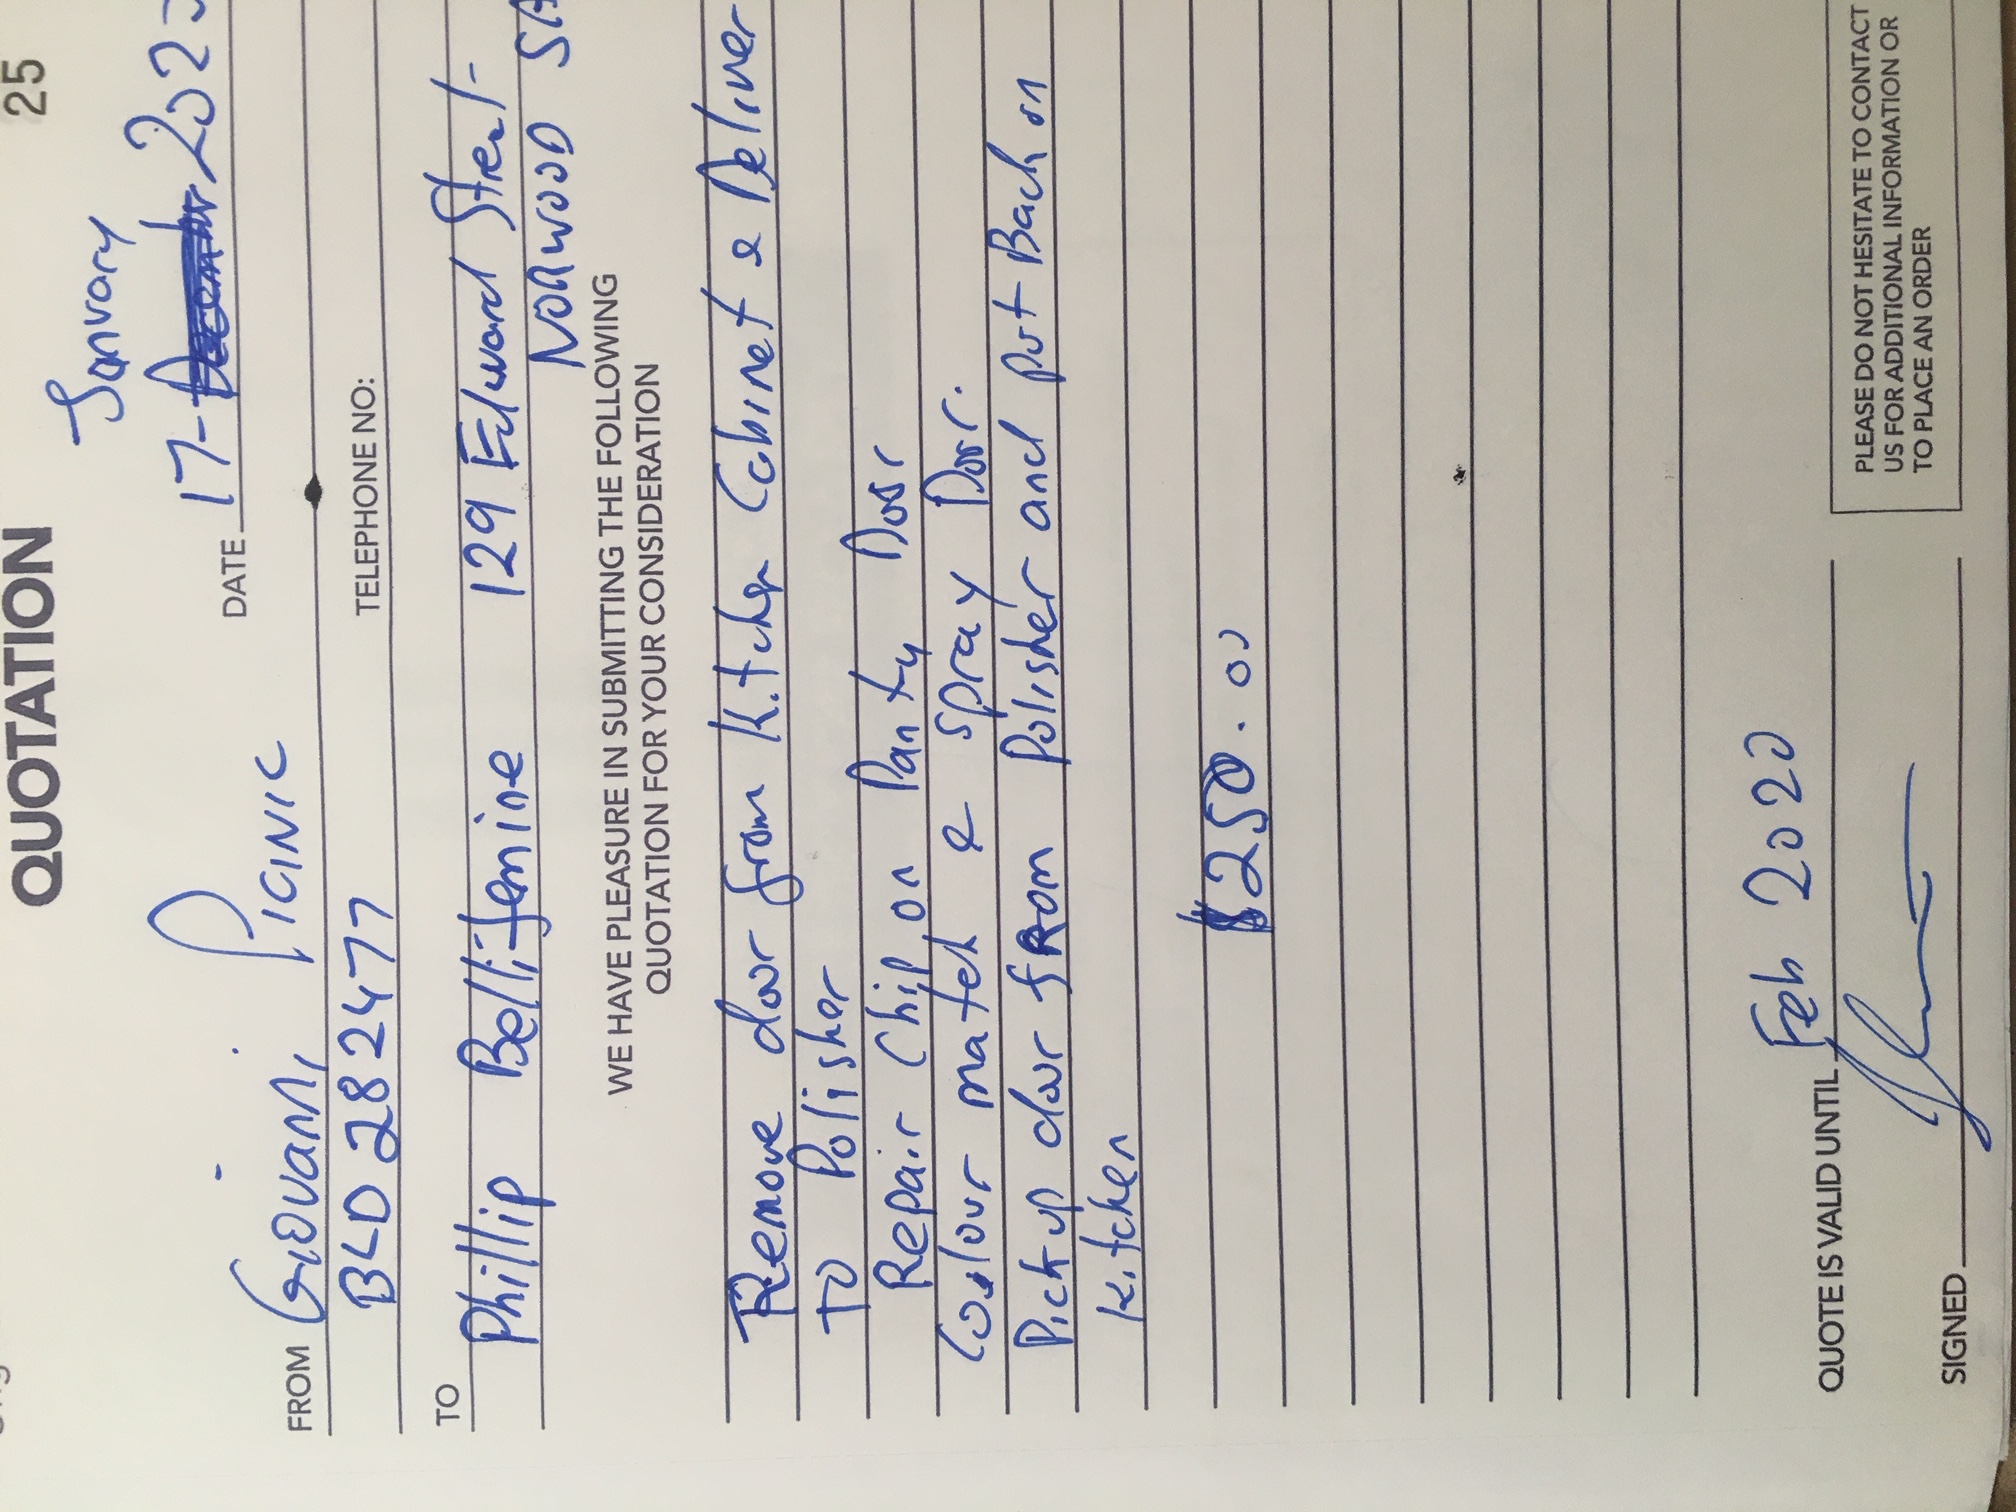 QUOTATION
25
January
DATE 17-December 2020
FROM Giovanni PICINIC
BLD 282477
TELEPHONE NO:
TO
Phillip Bellifemine 129 Edward Street
NORWOOD SA
WE HAVE PLEASURE IN SUBMITTING THE FOLLOWING
QUOTATION FOR YOUR CONSIDERATION
Remove door from Kitchen Cabinet & Deliver
TO Polisher
Repair Chip on Panty Door
Colour match & spray Door.
Pick up door from Polisher and put Back on
Kitchen
$250.00
QUOTE IS VALID UNTIL Feb 2020
SIGNED
PLEASE DO NOT HESITATE TO CONTACT
US FOR ADDITIONAL INFORMATION OR
TO PLACE AN ORDER